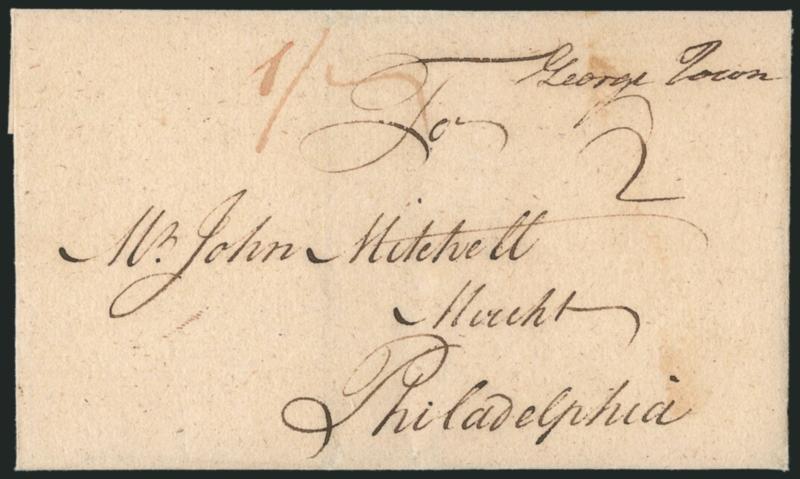 1/
George Town
To
2
Mr. John Mitchell
Mercht
Philadelphia